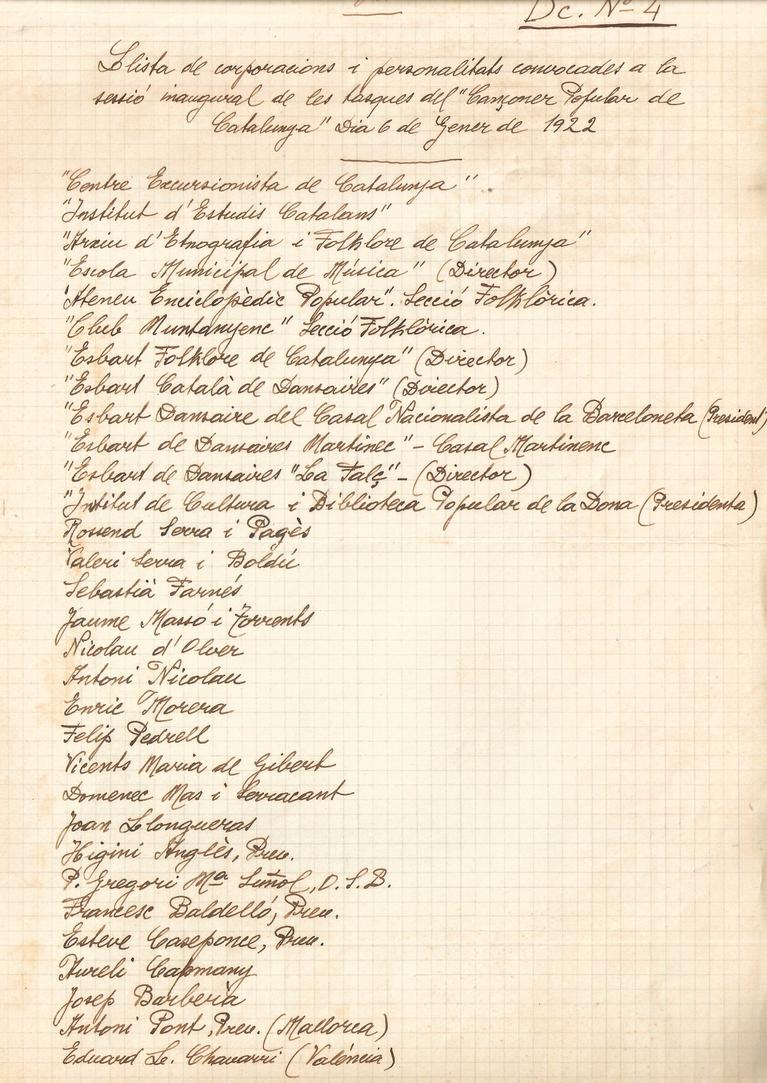 Dc. Nº 4
Llista de corporacions i personalitats convocades a la
sessió inaugural de les tasques del "Cançoner Popular de
Catalunya" Dia 6 de Gener de 1922
"Centre Excursionista de Catalunya"
"Institut d'Estudis Catalans"
"Arxiu d'Etnografia i Folklore de Catalunya"
"Escola Municipal de Música" (Director)
"Ateneu Enciclopèdic Popular". Secció Folklòrica.
"Club Muntanyenc" Secció Folklòrica.
"Esbart Folklore de Catalunya" (Director)
"Esbart Català de Dansaires" (Director)
"Esbart Dansaire del Casal Nacionalista de la Barceloneta (President)
"Esbart de Dansaires Martinec" - Casal Martinenc
"Esbart de Dansaires "La Falç" - (Director)
"Intitut de Cultura i Biblioteca Popular de la Dona (Presidenta)
Rossend Serra i Pagès
Valeri Serra i Boldú
Sebastià Farnés
Jaume Massó i Torrents
Nicolau d'Olver
Antoni Nicolau
Enric Morera
Felip Pedrell
Vicents Maria de Gibert
Domenec Mas i Serracant
Joan Llongueras
Higini Anglès, Prev.
P. Gregori Mª Suñol, O.S.B.
Francesc Baldelló, Prev.
Esteve Caseponce, Prev.
Aureli Capmany
Josep Barberà
Antoni Pont, Prev. (Mallorca)
Eduard L. Chavarri (València)